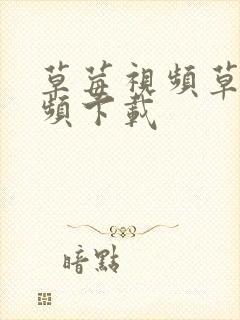 草莓視頻草
頻下載
暗點